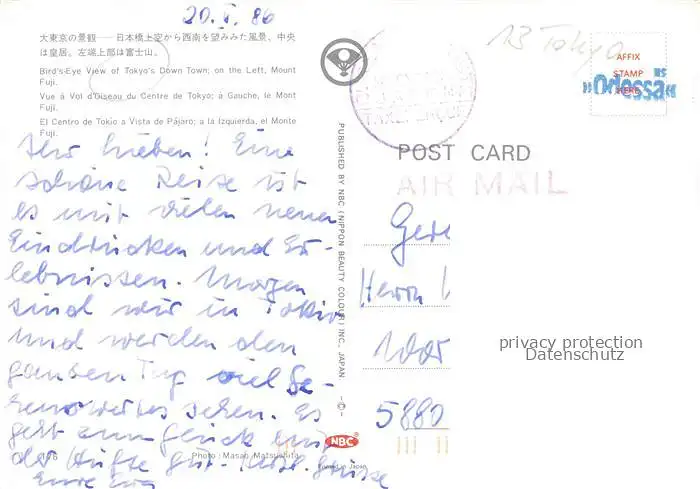 20. V. 86
大東京の景観――日本橋上空から西南を望みみた風景、中央
は皇居。左端上部は富士山。
Bird's-Eye View of Tokyo's Down Town; on the Left, Mount
Fuji.
Vue à Vol d'Oiseau du Centre de Tokyo; à Gauche, le Mont
Fuji.
El Centro de Tokio a Vista de Pájaro; a la Izquierda, el Monte
Fuji.
Ihr Lieben! Eine
schöne Reise ist
es mit vielen neuen
Eindrücken und Er-
lebnissen. Morgen
sind wir in Tokio
und werden den
ganzen Tag viel Se-
henswertes sehen. Es
geht zum Glück mit
der Hüfte gut. Herzl. Grüsse
Eure
106
Photo: Masao Matsushita
PUBLISHED BY NBC (NIPPON BEAUTY COLOUR) INC. JAPAN
NBC
Printed in Japan
13 Tokyo
AFFIX
STAMP
HERE
MS
»Odessa«
POST CARD
AIR MAIL
Herrn
5880
privacy protection
Datenschutz